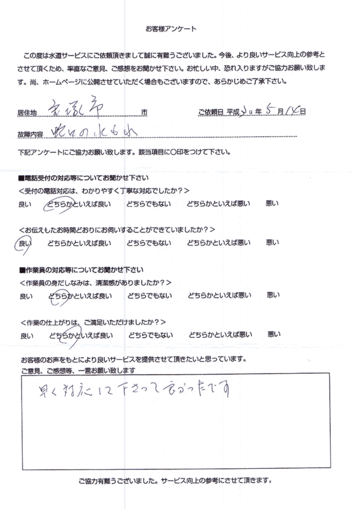 お客様アンケート
この度は水道サービスにご依頼頂きまして誠に有難うございました。今後、より良いサービス向上の参考と
させて頂くため、率直なご意見、ご感想をお聞かせ下さい。お忙しい中、恐れ入りますがご協力お願い致しま
す。尚、ホームページに公開させていただく場合もございますので、あらかじめご了承下さい。
居住地 市 ご依頼日 平成30年5月14日
故障内容 蛇口の水もれ
下記アンケートにご協力お願い致します。該当項目に〇印をつけて下さい。
■電話受付の対応等についてお聞かせ下さい
<受付の電話対応は、わかりやすく丁寧な対応でしたか?>
良い どちらかといえば良い どちらでもない どちらかといえば悪い 悪い
<お伝えしたお時間どおりにお伺いすることができていましたか?>
良い どちらかといえば良い どちらでもない どちらかといえば悪い 悪い
■作業員の対応等についてお聞かせ下さい
<作業員の身だしなみは、清潔感がありましたか?>
良い どちらかといえば良い どちらでもない どちらかといえば悪い 悪い
<作業の仕上がりは、ご満足いただけましたか?>
良い どちらかといえば良い どちらでもない どちらかといえば悪い 悪い
お客様のお声をもとにより良いサービスを提供させて頂きたいと思っています。
ご意見、ご感想等、一言お願い致します
早く対応して下さって良かったです
ご協力有難うございました。サービス向上の参考にさせて頂きます。